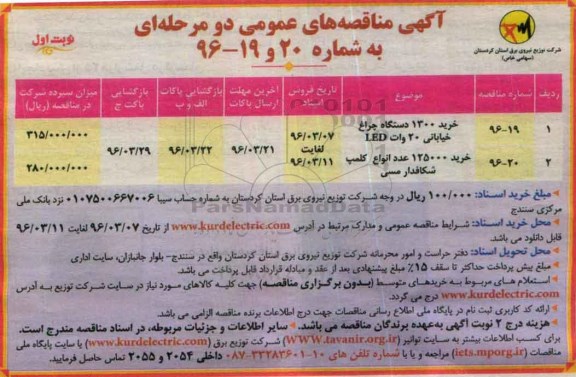 آگهی مناقصه‌های عمومی دو مرحله‌ای
به شماره ۲۰ و ۱۹-۹۶
نوبت اول
شرکت توزیع نیروی برق استان کردستان
(سهامی خاص)
ردیف شماره مناقصه موضوع تاریخ فروش اسناد آخرین مهلت ارسال پاکات بازگشایی پاکات الف و ب بازگشایی پاکت ج میزان سپرده شرکت در مناقصه (ریال)
۱ ۹۶-۱۹ خرید ۱۳۰۰ دستگاه چراغ خیابانی ۲۰ وات LED ۹۶/۰۳/۰۷ لغایت ۹۶/۰۳/۱۱ ۹۶/۰۳/۲۱ ۹۶/۰۳/۲۲ ۹۶/۰۳/۲۹ ۳۱۵/۰۰۰/۰۰۰
۲ ۹۶-۲۰ خرید ۱۲۵۰۰۰ عدد انواع کلمپ شکافدار مسی ۲۸۰/۰۰۰/۰۰۰
ParsNamadData
مبلغ خرید اسناد: ۱۰۰/۰۰۰ ریال در وجه شرکت توزیع نیروی برق استان کردستان به شماره حساب سیبا ۰۱۰۷۵۰۰۶۶۷۰۰۶ نزد بانک ملی
مرکزی سنندج
محل خرید اسناد: شرایط مناقصه عمومی و مدارک مرتبط در آدرس www.kurdelectric.com از تاریخ ۹۶/۰۳/۰۷ لغایت ۹۶/۰۳/۱۱
قابل دانلود می باشد.
محل تحویل اسناد: دفتر حراست و امور محرمانه شرکت توزیع نیروی برق استان کردستان واقع در سنندج- بلوار جانبازان، سایت اداری
مبلغ پیش پرداخت حداکثر تا سقف ۱۵٪ مبلغ پیشنهادی بعد از عقد و مبادله قرارداد قابل پرداخت می باشد.
استعلام های مربوط به خریدهای متوسط (بدون برگزاری مناقصه) جهت کلیه کالاهای مورد نیاز در سایت شرکت توزیع به آدرس
www.kurdelectric.com درج می گردد.
ارائه کد کاربری ثبت نام در پایگاه ملی اطلاع رسانی مناقصات جهت درج اطلاعات برنده مناقصه الزامی می باشد.
هزینه درج ۲ نوبت آگهی به‌عهده برندگان مناقصه می باشد. سایر اطلاعات و جزئیات مربوطه، در اسناد مناقصه مندرج است.
برای کسب اطلاعات بیشتر به سایت توانیر (WWW.tavanir.org.ir) شرکت توزیع برق (www.kurdelectric.com) یا سایت پایگاه ملی
مناقصات (iets.mporg.ir) مراجعه و یا با شماره تلفن های ۱۰-۰۸۷-۳۳۲۸۳۶۰۱ داخلی ۲۰۵۴ و ۲۰۵۵ تماس حاصل فرمایید.